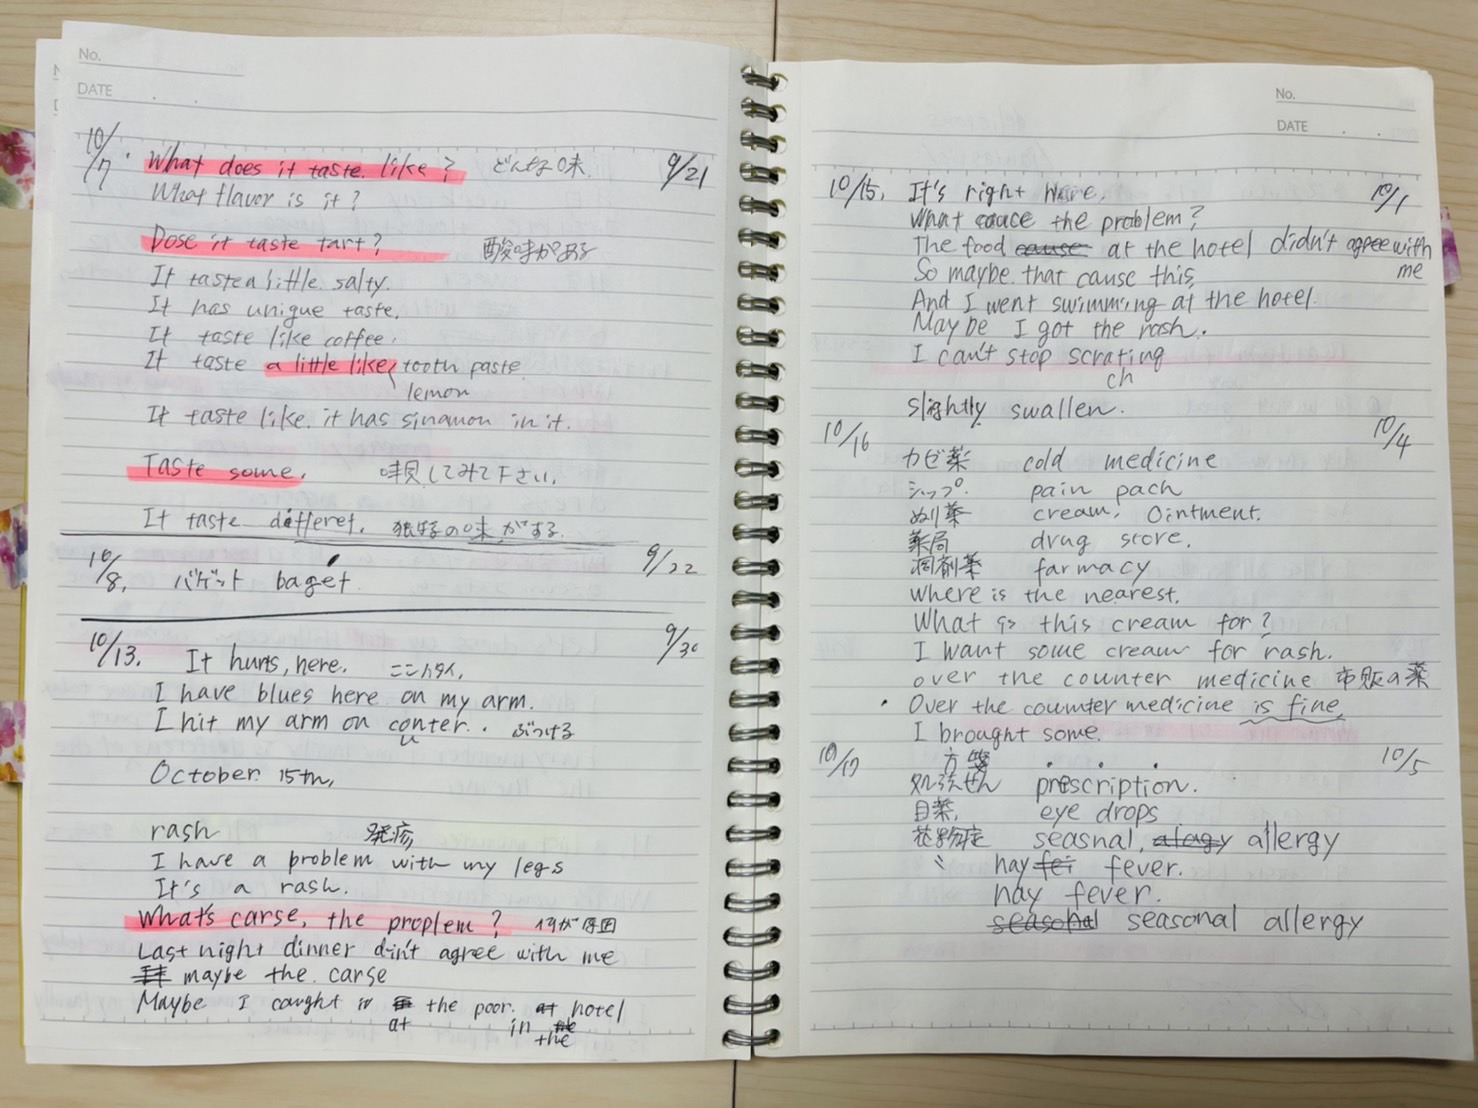 No.
DATE . .
10/7. What does it taste like? どんな味 9/21
What flavor is it?
Dose it taste tart? 酸味がある
It taste a little salty.
It has unique taste.
It taste like coffee.
It taste a little like tooth paste.
lemon
It taste like. it has sinamon in it.
Taste some. 味見してみて下さい.
It taste differet. 独特の味がする.
10/8. バゲット baget 9/22
10/13. It hurts, here. ここイタイ. 9/30
I have blues here on my arm.
I hit my arm on conter. ぶつける
u
October 15th,
rash 発疹
I have a problem with my legs
It's a rash.
What's carse, the proplem? 何が原因
Last night dinner din't agree with me
maybe the carse
Maybe I caught it the poor. at hotel
at in the
No.
DATE . .
10/15. It's right here. 10/1
What cauce the problem?
The food cause at the hotel didn't agree with
me
So maybe that cause this,
And I went swimming at the hotel.
Maybe I got the rash.
I can't stop scrating
ch
slightly swallen.
10/16 10/4
カゼ薬 cold medicine
シップ. pain pach
ぬり薬 cream, Ointment.
薬局 drug store.
調剤薬 farmacy
Where is the nearest.
What is this cream for?
I want some cream for rash.
over the counter medicine 市販の薬
・ Over the counter medicine is fine.
I brought some.
10/17 方箋 10/5
処方せん prescription.
目薬, eye drops
花粉症 seasnal, alagy allergy
〃 hay fei fever.
hay fever.
seasonal seasonal allergy